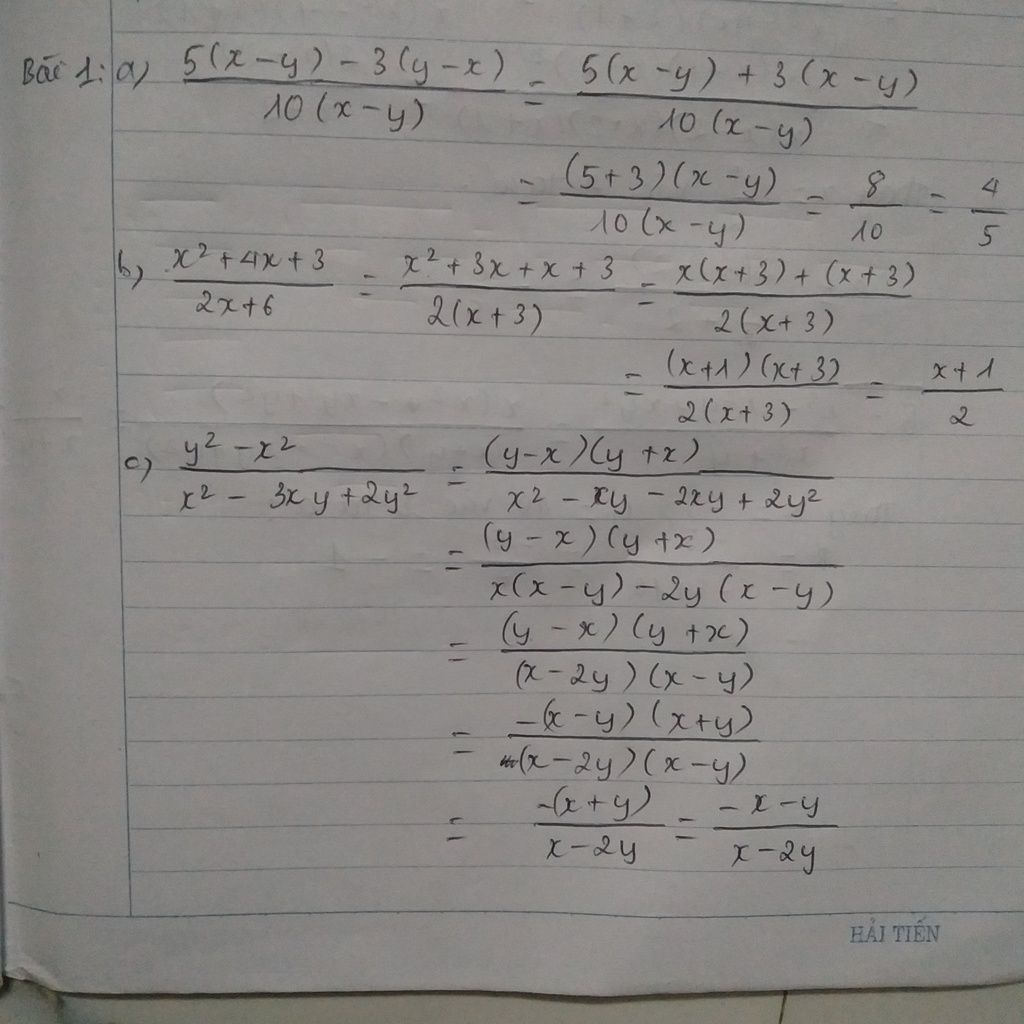 Bài 1: a) \frac{5(x-y)-3(y-x)}{10(x-y)} = \frac{5(x-y)+3(x-y)}{10(x-y)}
= \frac{(5+3)(x-y)}{10(x-y)} = \frac{8}{10} = \frac{4}{5}
b) \frac{x^2+4x+3}{2x+6} = \frac{x^2+3x+x+3}{2(x+3)} = \frac{x(x+3)+(x+3)}{2(x+3)}
= \frac{(x+1)(x+3)}{2(x+3)} = \frac{x+1}{2}
c) \frac{y^2-x^2}{x^2-3xy+2y^2} = \frac{(y-x)(y+x)}{x^2-xy-2xy+2y^2}
= \frac{(y-x)(y+x)}{x(x-y)-2y(x-y)}
= \frac{(y-x)(y+x)}{(x-2y)(x-y)}
= \frac{-(x-y)(x+y)}{(x-2y)(x-y)}
= \frac{-(x+y)}{x-2y} = \frac{-x-y}{x-2y}
HẢI TIẾN